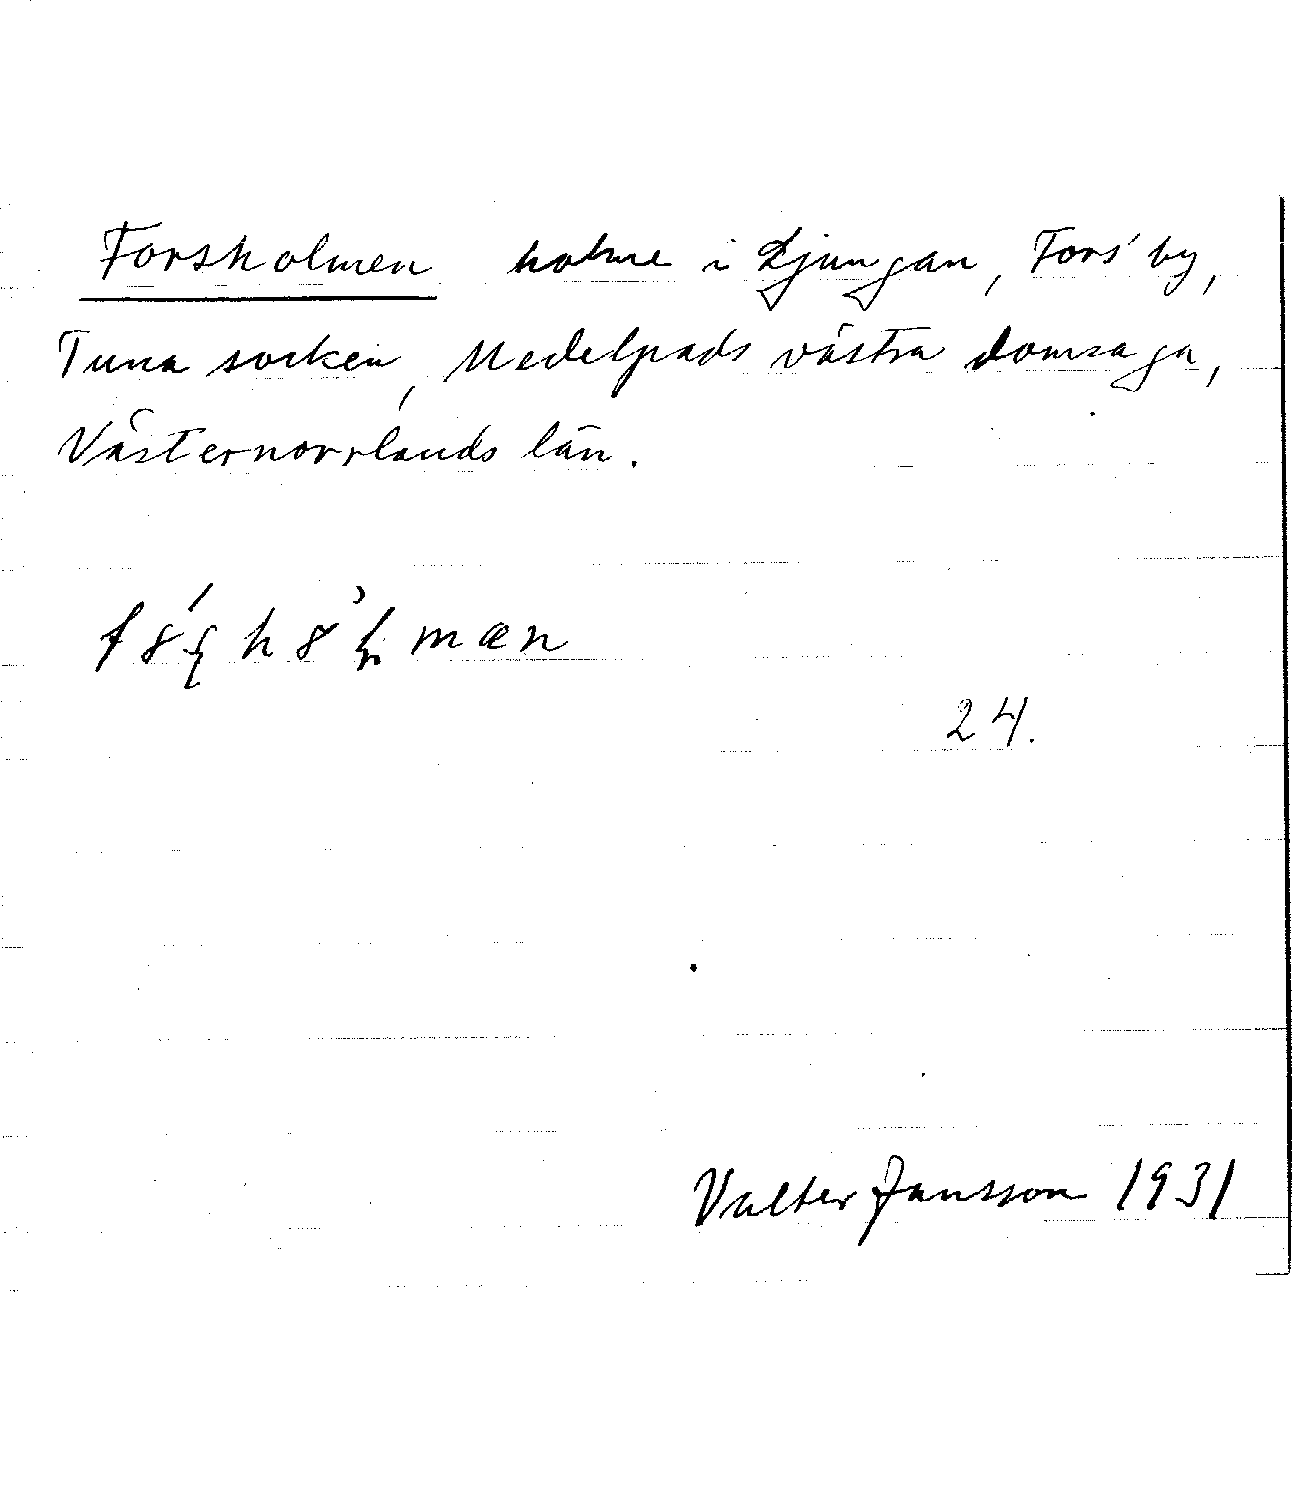 Forsholmen holme i Ljungan, Fors' by,
Tuna socken, Medelpads västra domsaga,
Västernorrlands län.
24.
Valter Jansson 1931